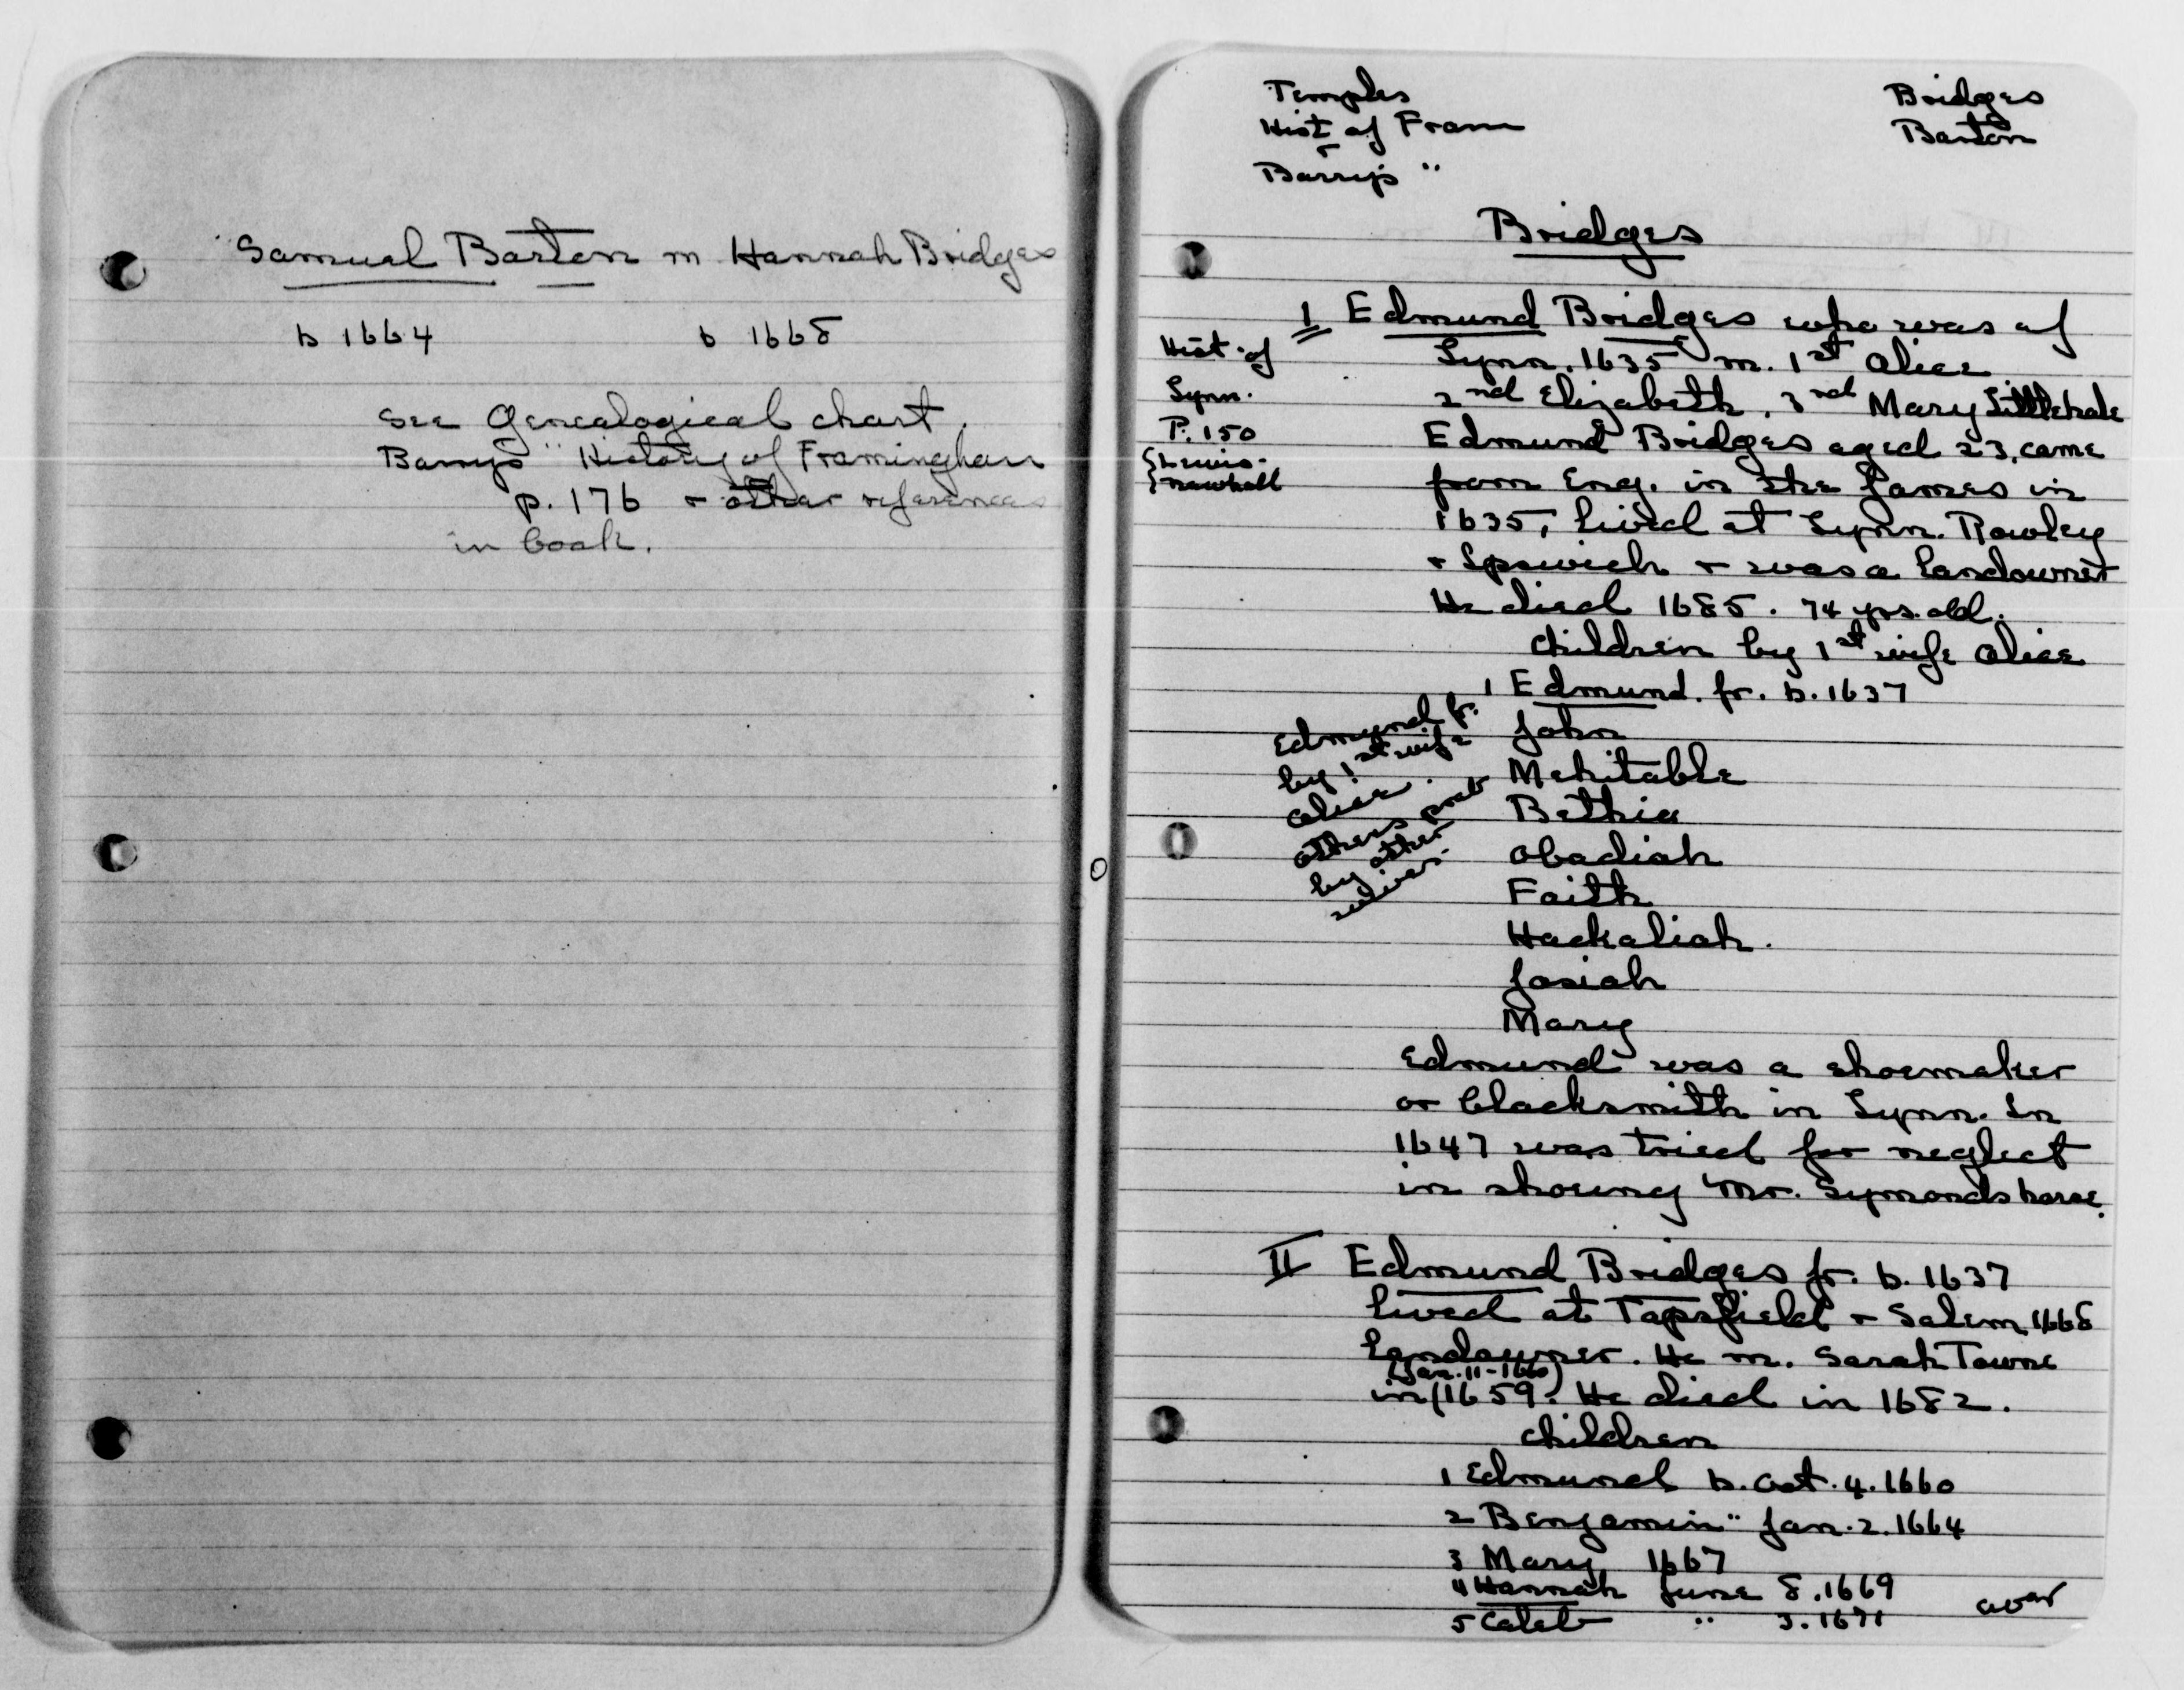 Samuel Barton m Hannah Bridges
b 1664 b 1668
see Genealogical chart,
Barrys "History of Framingham
p. 176 + other references
in book.
Temples
Hist of Fram
+
Barrys "
Bridges
Barton
Bridges
1 Edmund Bridges who was of
Lynn. 1635 m. 1st Alice
2nd Elizabeth, 3rd Mary Littlehale
Edmund Bridges aged 23, came
from Eng. in the James in
1635, lived at Lynn. Rowley
+ Ipswich + was a landowner
He died 1685. 74 yrs. old.
Hist. of
Lynn.
P. 150
{Lewis.
{Newhall
Children by 1st wife Alice
1 Edmund. Jr. b. 1637
John
Mehitable
Bethia
Obadiah
Faith
Hackaliah.
Josiah
Mary
Edmund Jr.
by 1st wife
Alice.
others prob
by other
wives.
Edmund was a shoemaker
or blacksmith in Lynn. In
1647 was tried for neglect
in shoeing Mr. Symonds horse.
II Edmund Bridges Jr. b. 1637
lived at Topsfield + Salem 1668
Landowner. He m. Sarah Towne
(Jan. 11-1660)
in (1659. He died in 1682.
Children
1 Edmund b. Oct. 4. 1660
2 Benjamin " Jan. 2. 1664
3 Mary 1667
4 Hannah June 8. 1669
5 Caleb " 3. 1671
over